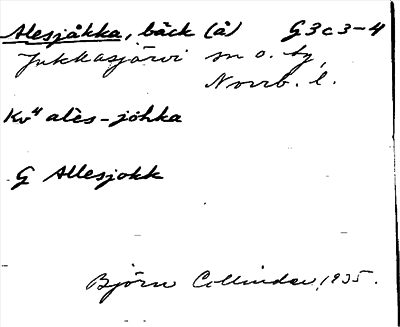 Alesjåkka, bäck (å) G3c3-4
Jukkasjärvi sn o. tg,
Norrb. l.
Kv⁴ alēs-jòhka
G Allesjokk
Björn Collinder, 1935.